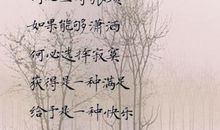 如果能够潇洒
何必选择寂寞
获得是一种满足
给于是一种快乐